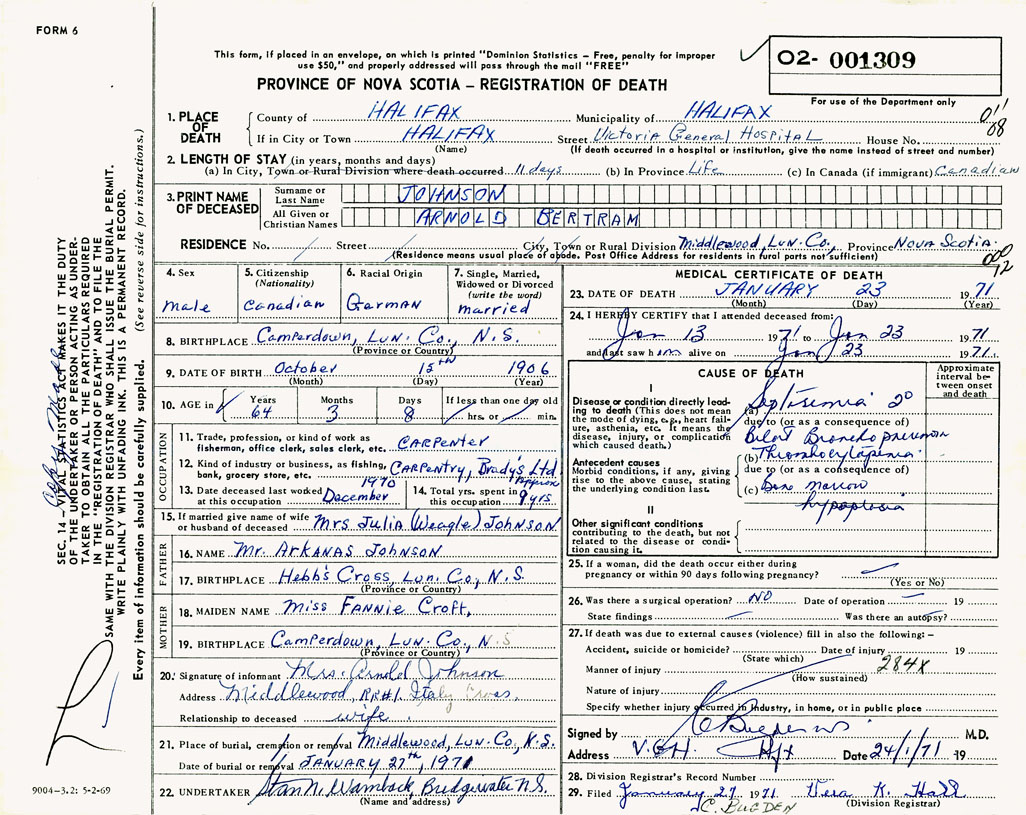 FORM 6
This form, if placed in an envelope, on which is printed "Dominion Statistics – Free, penalty for improper
use $50," and properly addressed will pass through the mail "FREE"
PROVINCE OF NOVA SCOTIA – REGISTRATION OF DEATH
02- 001309
For use of the Department only
1. PLACE OF DEATH
County of HALIFAX Municipality of HALIFAX
If in City or Town HALIFAX Street Victoria General Hospital House No.
(Name) (If death occurred in a hospital or institution, give the name instead of street and number)
2. LENGTH OF STAY (in years, months and days)
(a) In City, Town or Rural Division where death occurred 11 days (b) In Province Life (c) In Canada (if immigrant) Canadian
3. PRINT NAME OF DECEASED
Surname or Last Name JOHNSON
All Given or Christian Names ARNOLD BERTRAM
RESIDENCE No. Street City, Town or Rural Division Middlewood, Lun. Co., Province Nova Scotia
(Residence means usual place of abode. Post Office Address for residents in rural parts not sufficient)
4. Sex
male
5. Citizenship
(Nationality)
Canadian
6. Racial Origin
German
7. Single, Married,
Widowed or Divorced
(write the word)
married
8. BIRTHPLACE Camperdown, Lun. Co., N.S.
(Province or Country)
9. DATE OF BIRTH October 15th 1906
(Month) (Day) (Year)
10. AGE in
Years Months Days If less than one day old
64 3 8 hrs. or min.
OCCUPATION
11. Trade, profession, or kind of work as
fisherman, office clerk, sales clerk, etc. CARPENTER
12. Kind of industry or business, as fishing,
bank, grocery store, etc. CARPENTRY, Brady's Ltd
13. Date deceased last worked
at this occupation 1970 December
14. Total yrs. spent in
this occupation Approx 9 yrs.
15. If married give name of wife
or husband of deceased Mrs Julia (Weagle) Johnson
FATHER
16. NAME Mr. Arkanas Johnson
17. BIRTHPLACE Hebb's Cross, Lun. Co., N.S.
(Province or Country)
MOTHER
18. MAIDEN NAME Miss Fannie Croft,
19. BIRTHPLACE Camperdown, Lun. Co., N.S
(Province or Country)
20. Signature of informant Mrs. Arnold Johnson
Address Middlewood, RR#1, Italy Cross
Relationship to deceased wife.
21. Place of burial, cremption or removal Middlewood, Lun. Co., N.S.
Date of burial or removal JANUARY 27th, 1971
22. UNDERTAKER Stan N. Wamback, Bridgewater N.S.
(Name and address)
MEDICAL CERTIFICATE OF DEATH
23. DATE OF DEATH JANUARY 23 1971
(Month) (Day) (Year)
24. I HEREBY CERTIFY that I attended deceased from:
Jan 13 1971 to Jan 23 1971
and last saw him alive on Jan 23 1971
CAUSE OF DEATH
Approximate
interval be-
tween onset
and death
I
Disease or condition directly lead-
ing to death (This does not mean
the mode of dying, e.g., heart fail-
ure, asthenia, etc. It means the
disease, injury, or complication
which caused death.)
(a) Septisemia 2°
due to (or as a consequence of)
Bilat Bronchopneumonia
Antecedent causes
Morbid conditions, if any, giving
rise to the above cause, stating
the underlying condition last.
(b) Thrombocytopenia
due to (or as a consequence of)
(c) Bone marrow
hypoplasia
II
Other significant conditions
contributing to the death, but not
related to the disease or condi-
tion causing it.
25. If a woman, did the death occur either during
pregnancy or within 90 days following pregnancy?
(Yes or No)
26. Was there a surgical operation? NO Date of operation 19
State findings Was there an autopsy?
27. If death was due to external causes (violence) fill in also the following: –
Accident, suicide or homicide? Date of injury 19
(State which)
Manner of injury 284X
(How sustained)
Nature of injury
Specify whether injury occurred in Industry, in home, or in public place
Signed by C Bugden M.D.
Address V.G.H. Hfx Date 24/1/71 19
28. Division Registrar's Record Number
29. Filed January 27 1971 Vera K. Hall
(Division Registrar)
C. BUGDEN
SEC. 14—VITAL STATISTICS ACT MAKES IT THE DUTY
OF THE UNDERTAKER OR PERSON ACTING AS UNDER-
TAKER TO OBTAIN ALL THE PARTICULARS REQUIRED
IN THE "REGISTRATION OF DEATH" AND TO FILE THE
SAME WITH THE DIVISION REGISTRAR WHO SHALL ISSUE THE BURIAL PERMIT.
WRITE PLAINLY WITH UNFADING INK. THIS IS A PERMANENT RECORD.
Every item of information should be carefully supplied. (See reverse side for instructions.)
9004-3.2: 5-2-69